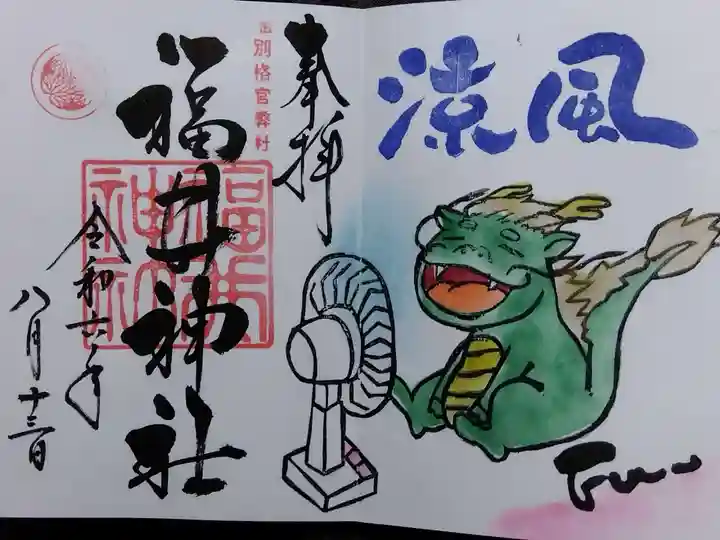 涼風
奉拝
別格官弊社
福井神社
福井神社
令和六年
八月十三日